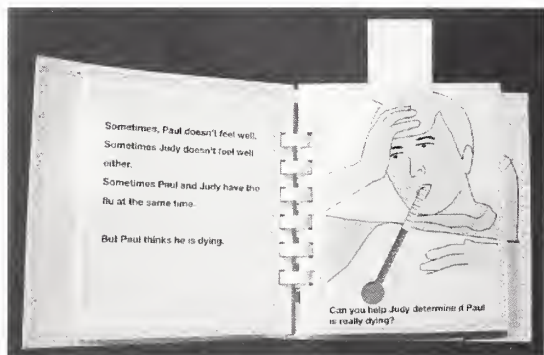 Sometimes, Paul doesn't feel well.
Sometimes Judy doesn't feel well
either.
Sometimes Paul and Judy have the
flu at the same time.
But Paul thinks he is dying.
Can you help Judy determine if Paul
is really dying?